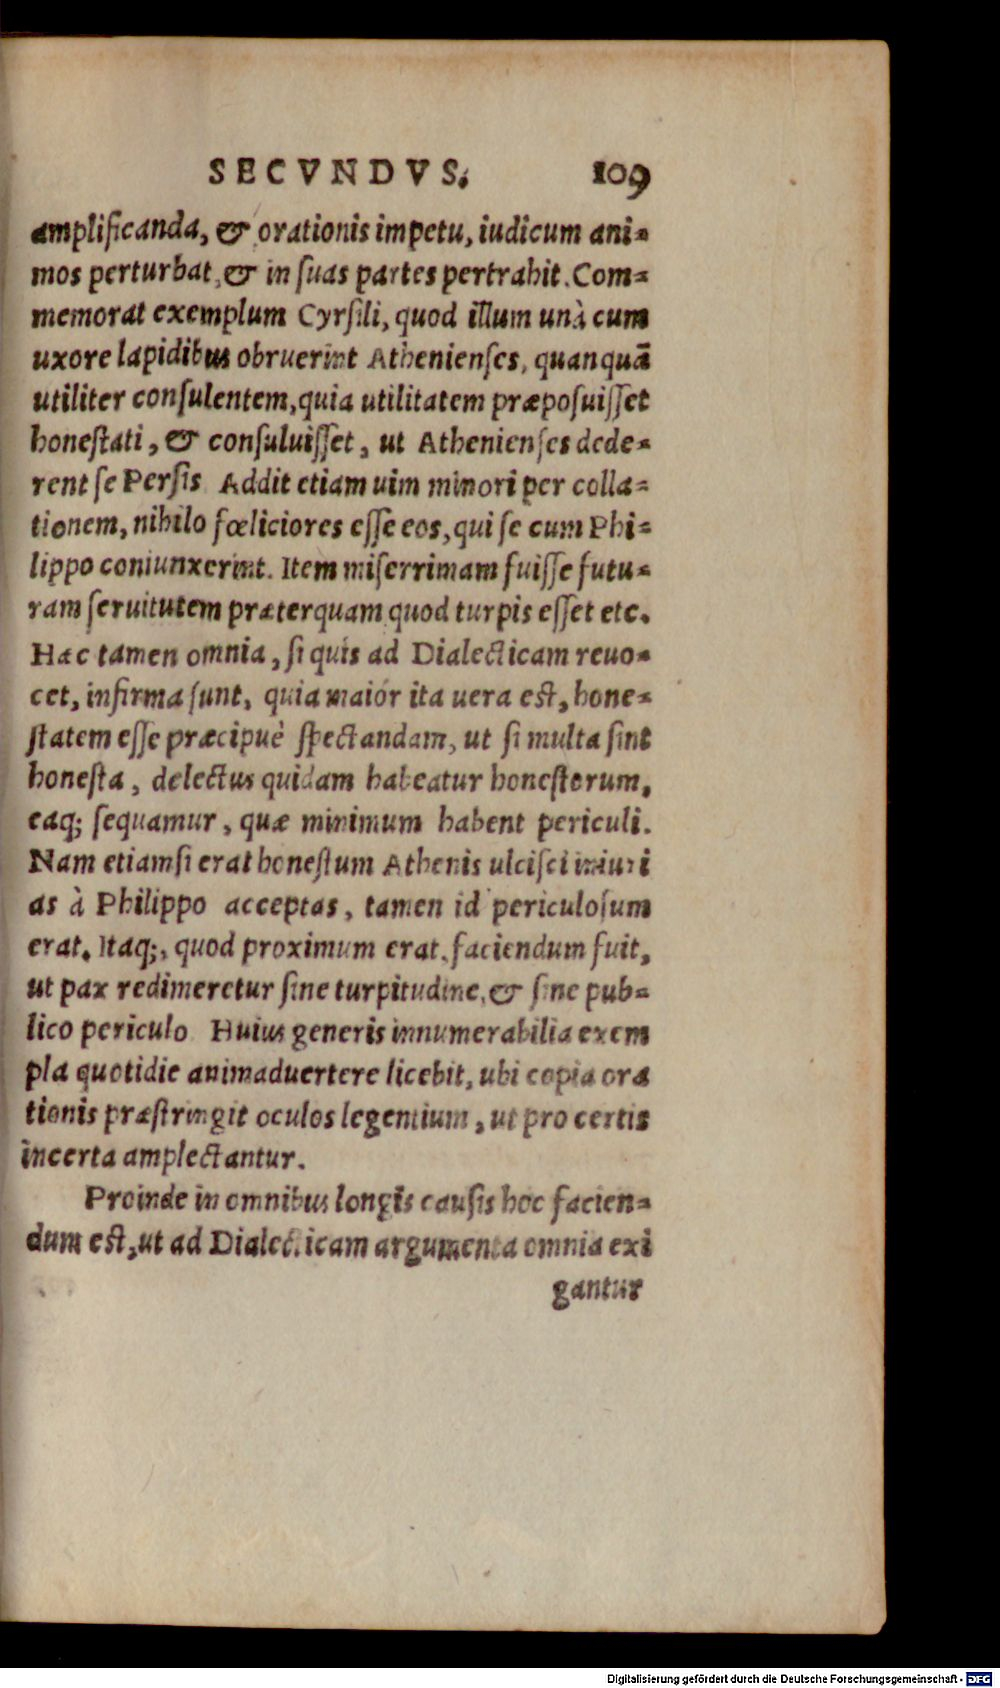 SECVNDVS. 109
amplificanda, & orationis impetu, iudicum ani-
mos perturbat, & in ſuas partes pertrahit. Com-
memorat exemplum Cyrſili, quod illum unà cum
uxore lapidibus obruerint Athenienſes, quanquã
utiliter conſulentem, quia utilitatem præpoſuiſſet
honeſtati, & conſuluiſſet, ut Athenienſes dede-
rent ſe Perſis Addit etiam uim minori per colla-
tionem, nihilo fœliciores eſſe eos, qui ſe cum Phi-
lippo coniunxerint. Item miſerrimam fuiſſe futu-
ram ſeruitutem præterquam quod turpis eſſet etc.
Hæc tamen omnia, ſi quis ad Dialecticam reuo-
cet, infirma ſunt, quia maior ita uera eſt, hone-
ſtatem eſſe præcipuè ſpectandam, ut ſi multa ſint
honeſta, delectus quidam habeatur honeſtorum,
eaq; ſequamur, quæ minimum habent periculi.
Nam etiamſi erat honeſtum Athenis ulciſci iniuri
as à Philippo acceptas, tamen id periculoſum
erat. Itaq;, quod proximum erat, faciendum fuit,
ut pax redimeretur ſine turpitudine, & ſine pub-
lico periculo Huius generis innumerabilia exem
pla quotidie animaduertere licebit, ubi copia ora
tionis præſtringit oculos legentium, ut pro certis
incerta amplectantur.
Proinde in omnibus longis cauſis hoc facien-
dum eſt, ut ad Dialecticam argumenta omnia exi
gantur
Digitalisierung gefördert durch die Deutsche Forschungsgemeinschaft - DFG